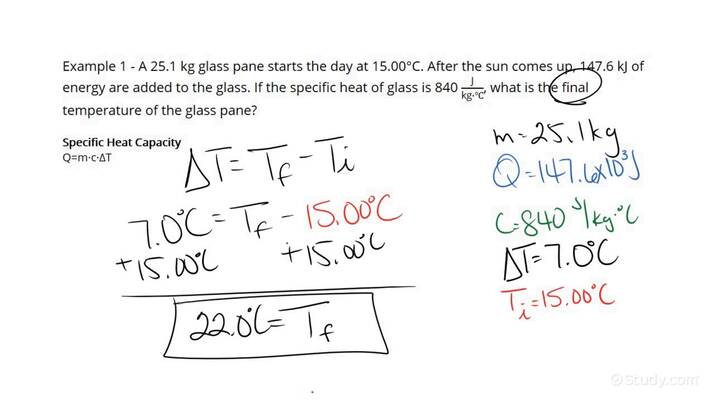 Example 1 - A 25.1 kg glass pane starts the day at 15.00°C. After the sun comes up, 147.6 kJ of
energy are added to the glass. If the specific heat of glass is 840 J/kg·°C, what is the final
temperature of the glass pane?
Specific Heat Capacity
Q=m·c·ΔT
ΔT = Tf - Ti
7.0°C = Tf - 15.00°C
+15.00°C +15.00°C
22.0°C = Tf
m = 25.1kg
Q = 147.6x10³J
C = 840 J/kg·°C
ΔT = 7.0°C
Ti = 15.00°C
©Study.com